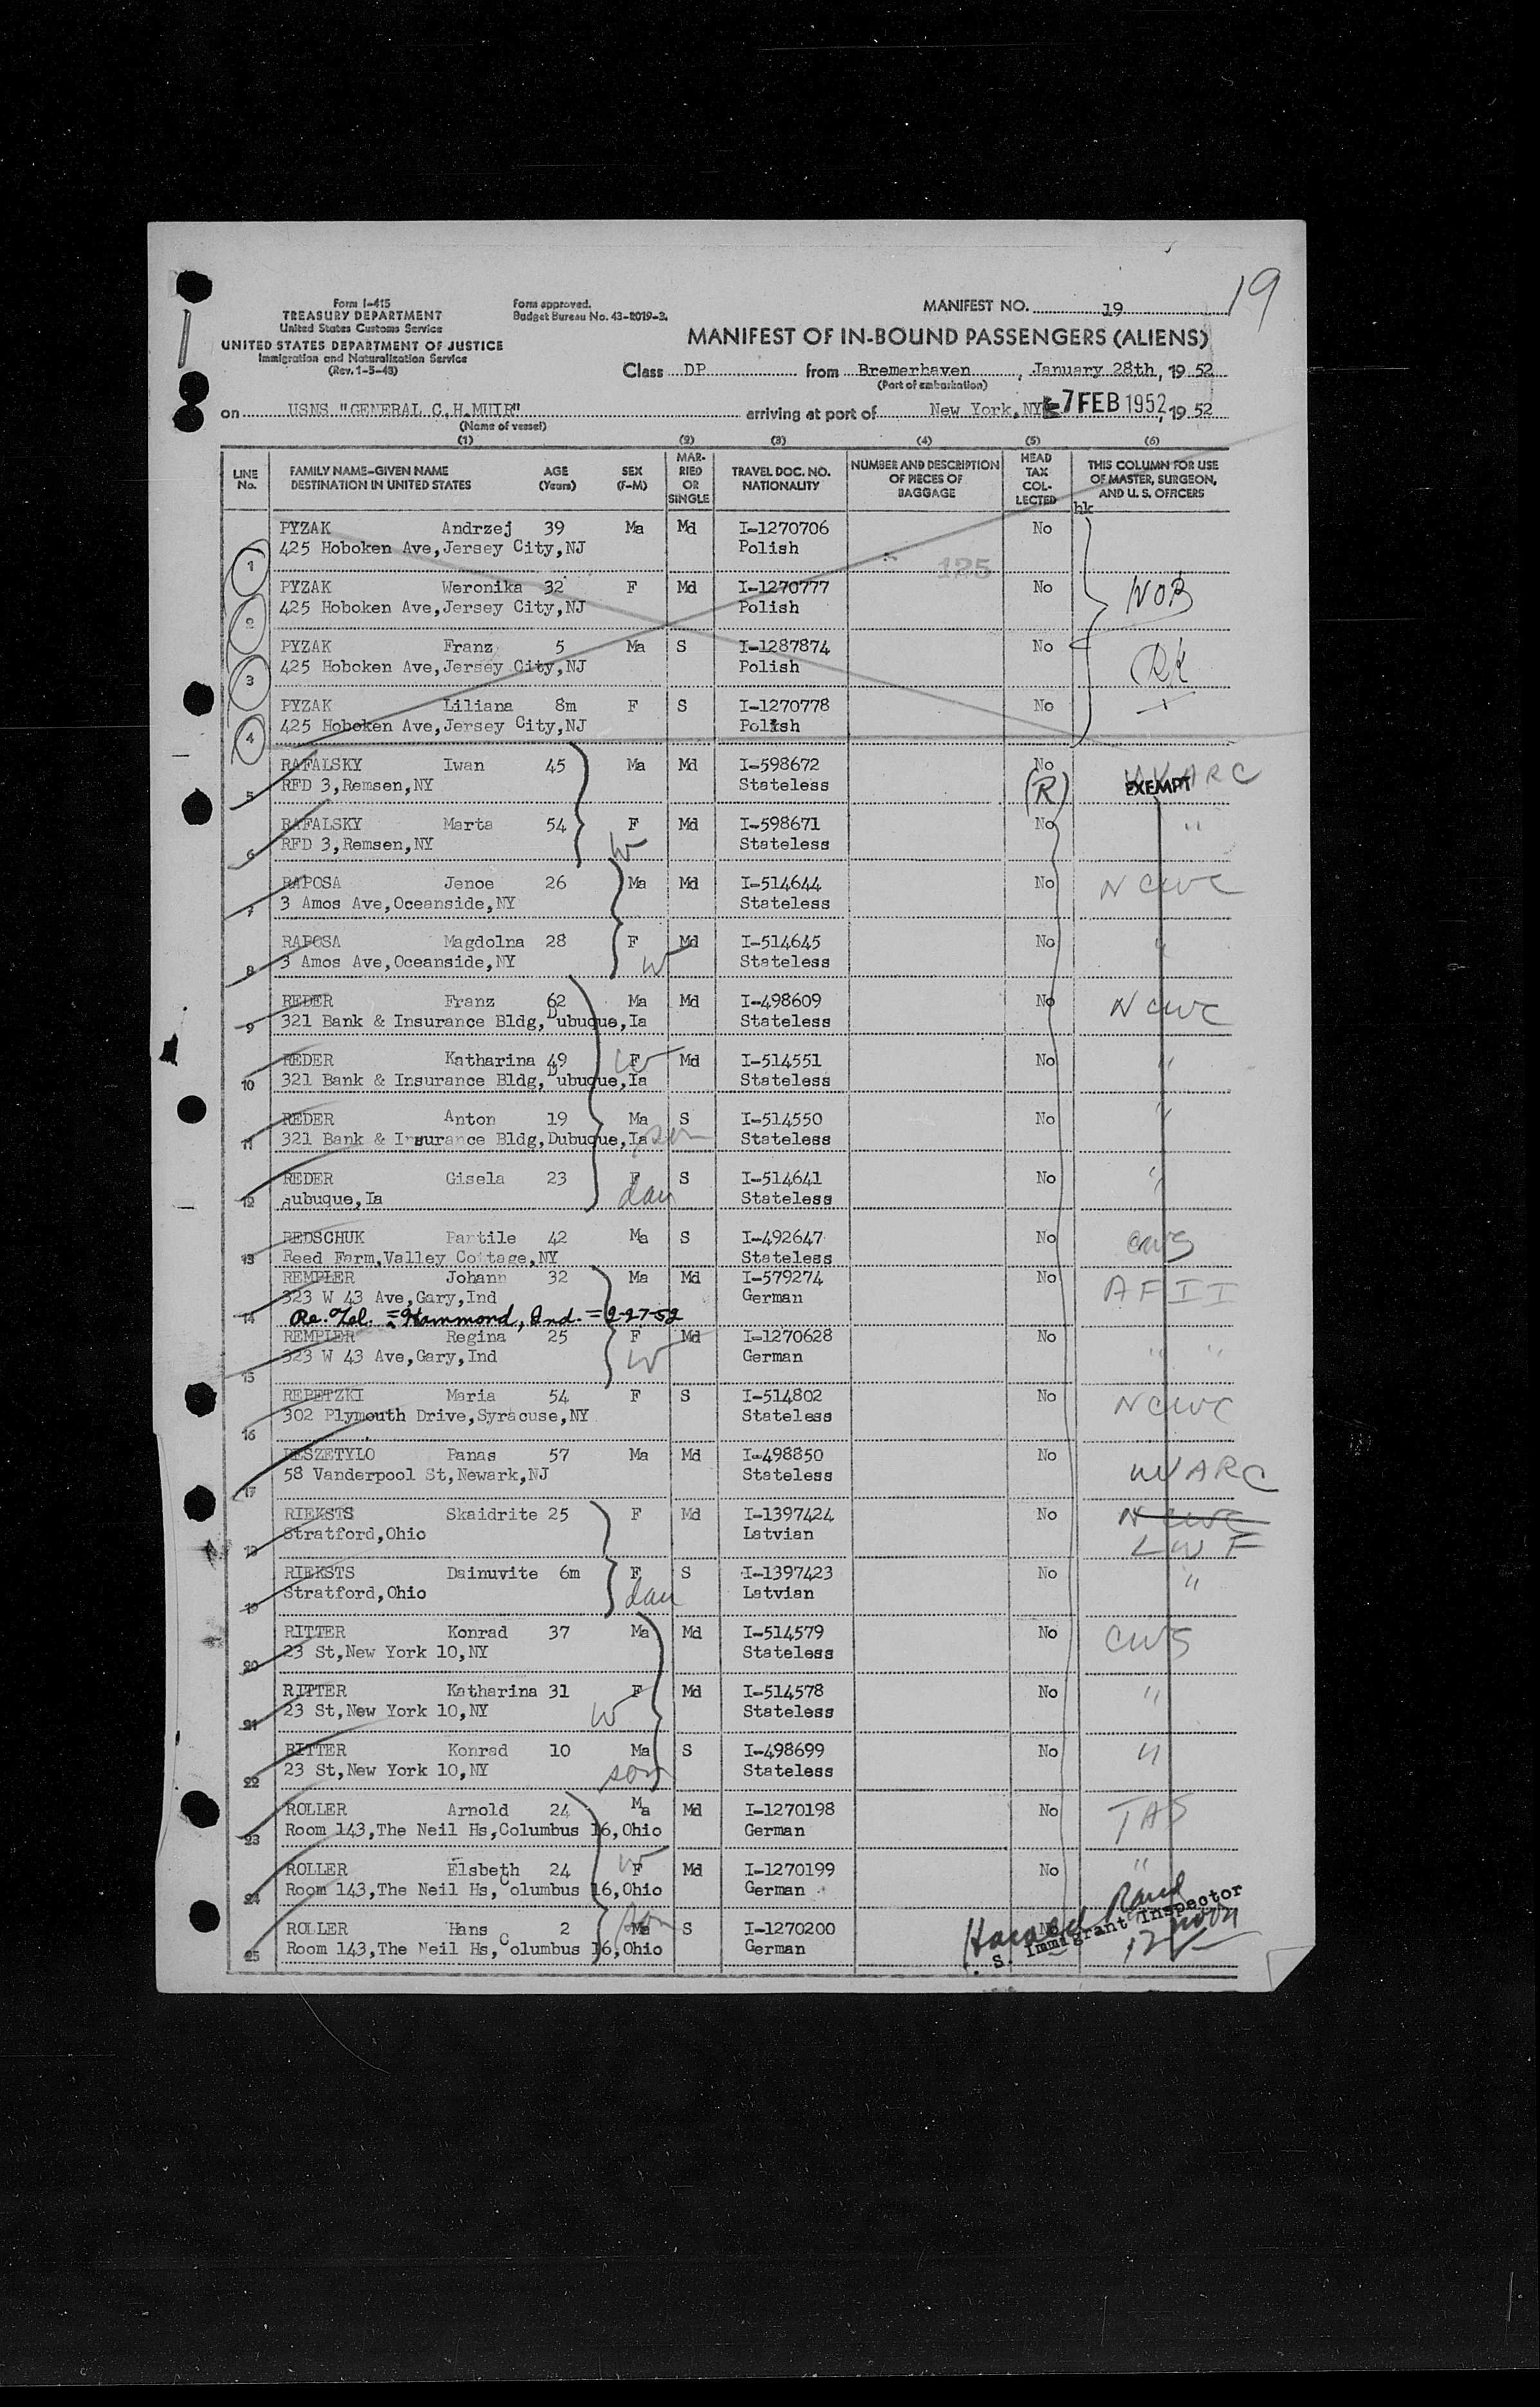 19
Form I-415
TREASURY DEPARTMENT
United States Customs Service
UNITED STATES DEPARTMENT OF JUSTICE
Immigration and Naturalization Service
(Rev. 1-5-48)
Form approved.
Budget Bureau No. 43-R019-3.
MANIFEST NO. 19
MANIFEST OF IN-BOUND PASSENGERS (ALIENS)
Class DP from Bremerhaven, January 28th, 1952
(Port of embarkation)
on USNS "GENERAL C.H.MUIR" arriving at port of New York,NY 7 FEB 1952, 1952
(Name of vessel)
(1) (2) (3) (4) (5) (6)
LINE No. FAMILY NAME-GIVEN NAME DESTINATION IN UNITED STATES AGE (Years) SEX (F-M) MARRIED OR SINGLE TRAVEL DOC. NO. NATIONALITY NUMBER AND DESCRIPTION OF PIECES OF BAGGAGE HEAD TAX COLLECTED THIS COLUMN FOR USE OF MASTER, SURGEON, AND U. S. OFFICERS
hk
PYZAK Andrzej 39 Ma Md I-1270706 No
1 425 Hoboken Ave,Jersey City,NJ Polish
125
PYZAK Weronika 32 F Md I-1270777 No NOB
2 425 Hoboken Ave,Jersey City,NJ Polish
PYZAK Franz 5 Ma S I-1287874 No
3 425 Hoboken Ave,Jersey City,NJ Polish
PYZAK Liliana 8m F S I-1270778 No
4 425 Hoboken Ave,Jersey City,NJ Polish
RAFALSKY Iwan 45 Ma Md I-598672 No ARC
5 RFD 3,Remsen,NY Stateless (R) EXEMPT
RAFALSKY Marta 54 F Md I-598671 No "
6 RFD 3,Remsen,NY W Stateless
RAPOSA Jenoe 26 Ma Md I-514644 No NCWC
7 3 Amos Ave,Oceanside,NY Stateless
RAPOSA Magdolna 28 F Md I-514645 No "
8 3 Amos Ave,Oceanside,NY W Stateless
REDER Franz 62 Ma Md I-498609 No NCWC
9 321 Bank & Insurance Bldg,Dubuque,Ia Stateless
REDER Katharina 49 F W Md I-514551 No "
10 321 Bank & Insurance Bldg,Dubuque,Ia Stateless
REDER Anton 19 Ma S I-514550 No "
11 321 Bank & Insurance Bldg,Dubuque,Ia son Stateless
REDER Gisela 23 F S I-514641 No "
12 dubuque,Ia dau Stateless
REDSCHUK Pantile 42 Ma S I-492647 No CWS
13 Reed Farm,Valley Cottage,NY Stateless
REMPLER Johann 32 Ma Md I-579274 No AFII
323 W 43 Ave,Gary,Ind German
14 Re. Tel. = Hammond, Ind. = 2-27-52
REMPLER Regina 25 F Md I-1270628 No " "
15 323 W 43 Ave,Gary,Ind W German
REPETZKI Maria 54 F S I-514802 No NCWC
16 302 Plymouth Drive,Syracuse,NY Stateless
RESZETYLO Panas 57 Ma Md I-498850 No
17 58 Vanderpool St,Newark,NJ Stateless UUARC
RIEKSTS Skaidrite 25 F Md I-1397424 No NCWC
18 Stratford,Ohio Latvian LWF
RIEKSTS Dainuvite 6m F S I-1397423 No "
19 Stratford,Ohio dau Latvian
RITTER Konrad 37 Ma Md I-514579 No CWS
20 23 St,New York 10,NY Stateless
RITTER Katharina 31 F Md I-514578 No "
21 23 St,New York 10,NY W Stateless
RITTER Konrad 10 Ma S I-498699 No "
22 23 St,New York 10,NY son Stateless
ROLLER Arnold 24 Ma Md I-1270198 No TAS
23 Room 143,The Neil Hs,Columbus 16,Ohio German
ROLLER Elsbeth 24 W F Md I-1270199 No "
24 Room 143,The Neil Hs,Columbus 16,Ohio German
ROLLER Hans 2 son Ma S I-1270200 No
25 Room 143,The Neil Hs,Columbus 16,Ohio German
S. Immigrant Inspector